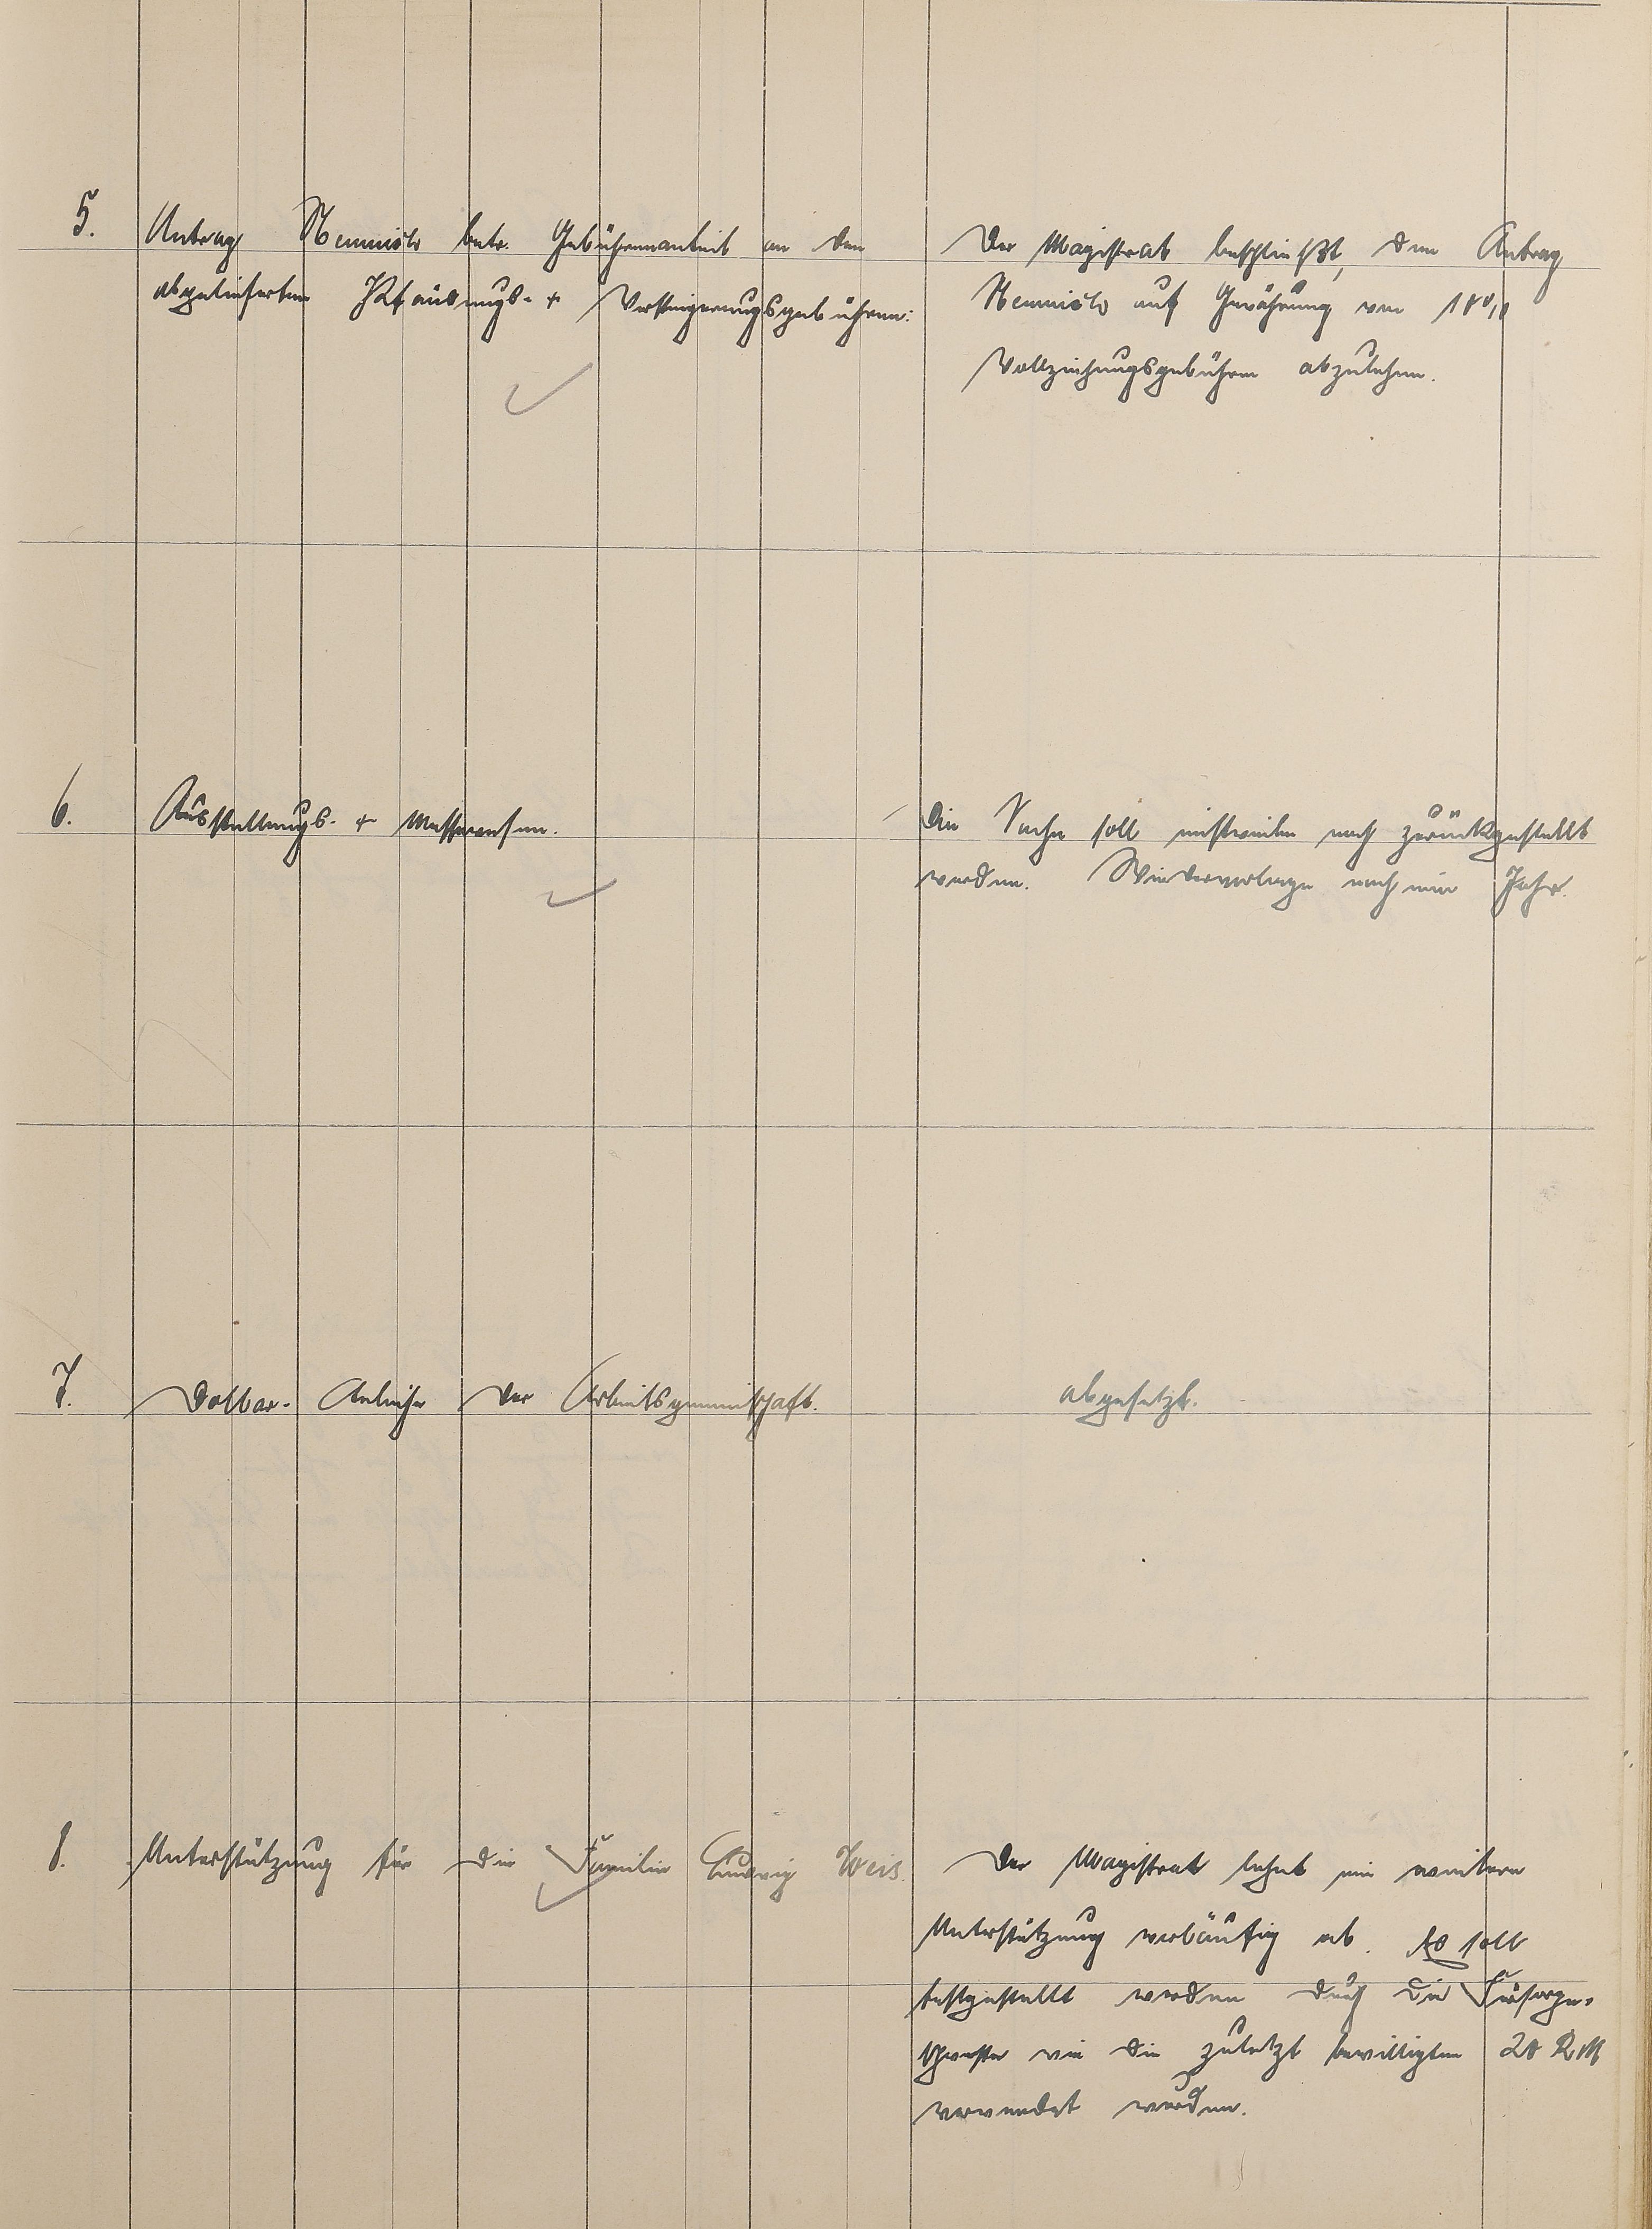 5.
Antrag Hennicke betr. Gebührenanteil an den
abgelieferten Pfändungs- + Versteigerungsgebühren:
Der Magistrat beschließt, den Antrag
auf Gewährung von
Vollziehungsgebühren abzulehnen.
6.
Ausstellungs- + Messewesen.
Die Sache soll einstweilen noch zurückgestellt
werden. Wiedervorlage nach einem Jahr.
7.
Dollar-Anleihe der Arbeitsgemeinschaft.
abgesetzt.
8.
Unterstützung für die Familie Ludwig Weis
Der Magistrat lehnt eine weitere
Unterstützung vorläufig ab. Es soll
festgestellt werden durch die Fürsorge-
schwester wie die zuletzt bewilligten 20 RM
verwendet wurden.